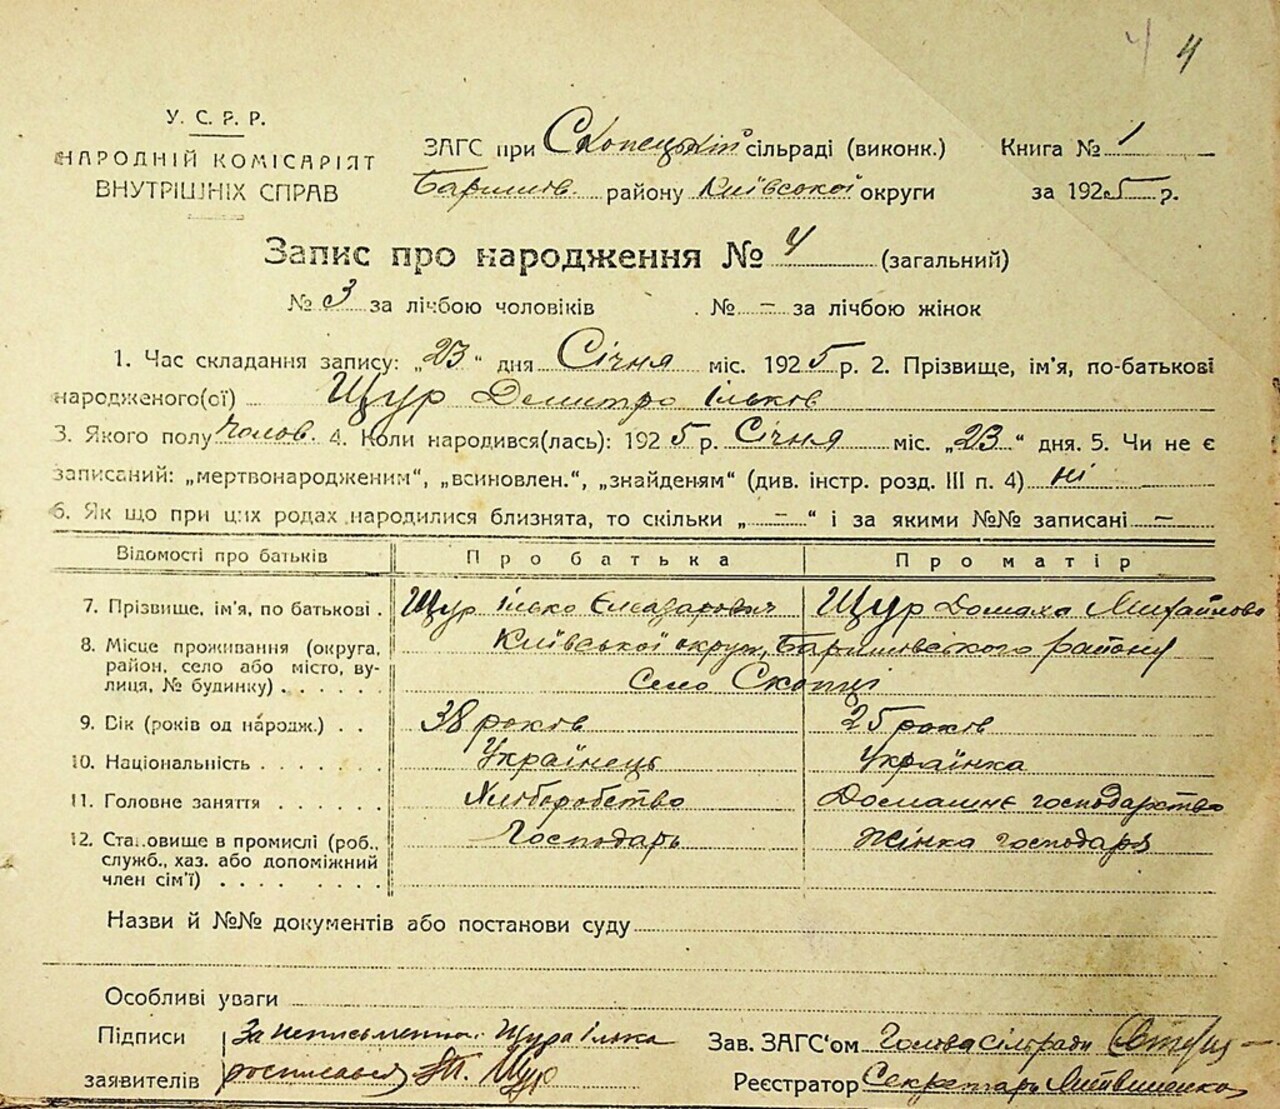 4 4
У. С. Р. Р.
НАРОДНІЙ КОМІСАРІЯТ
ВНУТРІШНІХ СПРАВ
ЗАГС при Скопецькій сільраді (виконк.) Книга № 1
Баришів. району Київської округи за 1925 р.
Запис про народження № 4 (загальний)
№ 3 за лічбою чоловіків № – за лічбою жінок
1. Час складання запису: „23“ дня Січня міс. 1925 р. 2. Прізвище, ім'я, по-батькові
народженого(ої) Щур Демитро Ільков
3. Якого полу чолов. 4. Коли народився(лась): 1925 р. Січня міс. „23“ дня. 5. Чи не є
записаний: „мертвонародженим“, „всиновлен.“, „знайденям“ (див. інстр. розд. III п. 4) ні
6. Як що при цих родах народилися близнята, то скільки „–“ і за якими №№ записані –
Відомості про батьків Про батька Про матір
7. Прізвище, ім'я, по батькові . Щур Ілько Єлеазарович Щур Домаха Михайлово
8. Місце проживання (округа, район, село або місто, вулиця, № будинку) . . . . . . Київської округи, Баришовського району
Село Скопці
9. Вік (років од народж.) . . 38 років 25 років
10. Національність . . . . . . . Українець Українка
11. Головне заняття . . . . . . Хліборобство Домашнє господарство
12. Становище в промислі (роб., служб., хаз. або допоміжний член сім'ї) . . . . . . . . Господарь Жінка господаря
Назви й №№ документів або постанови суду
Особливі уваги
Підписи За неписьменного Щура Ілька Зав. ЗАГС'ом Голова сілради
заявителів росписався Щур Реєстратор Секретарь Литвиненко